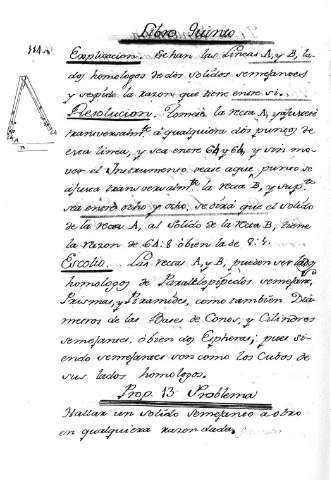 Libro Quinto
114.a
Explicacion. Dehan las Lineas A, y B, la-
dos homologos de dos solidos semejantes
y se pide la razon que tiene entre si.
Resolucion. Tomese la recta A, y ajustese
transversalmte. à qualquiera dos puntos de
esta linea, y sea entre 64 y 64, y sin mo-
ver el Instrumento vease aque punto se
ajusta transversalmte. la recta B, y
sea entre ocho y ocho, se dirà que el solido
de la recta A, al solido de la recta B, tiene
la razon de 64: 8 ò bien la de 8: 1.
Escolio. Las rectas A, y B, pueden ser lados
homologos de Paralelepipedos semejan.
Prismas, y Piramides, como tambien Dia-
metros de las Bases de Conos, y Cilindros
semejantes, ò bien dos Espheras; pues si-
endo semejantes son como los Cubos de
sus lados homologos.
Prop. 13. Problema
Hallar un solido semejante à otro
en qualquiera razon dada.